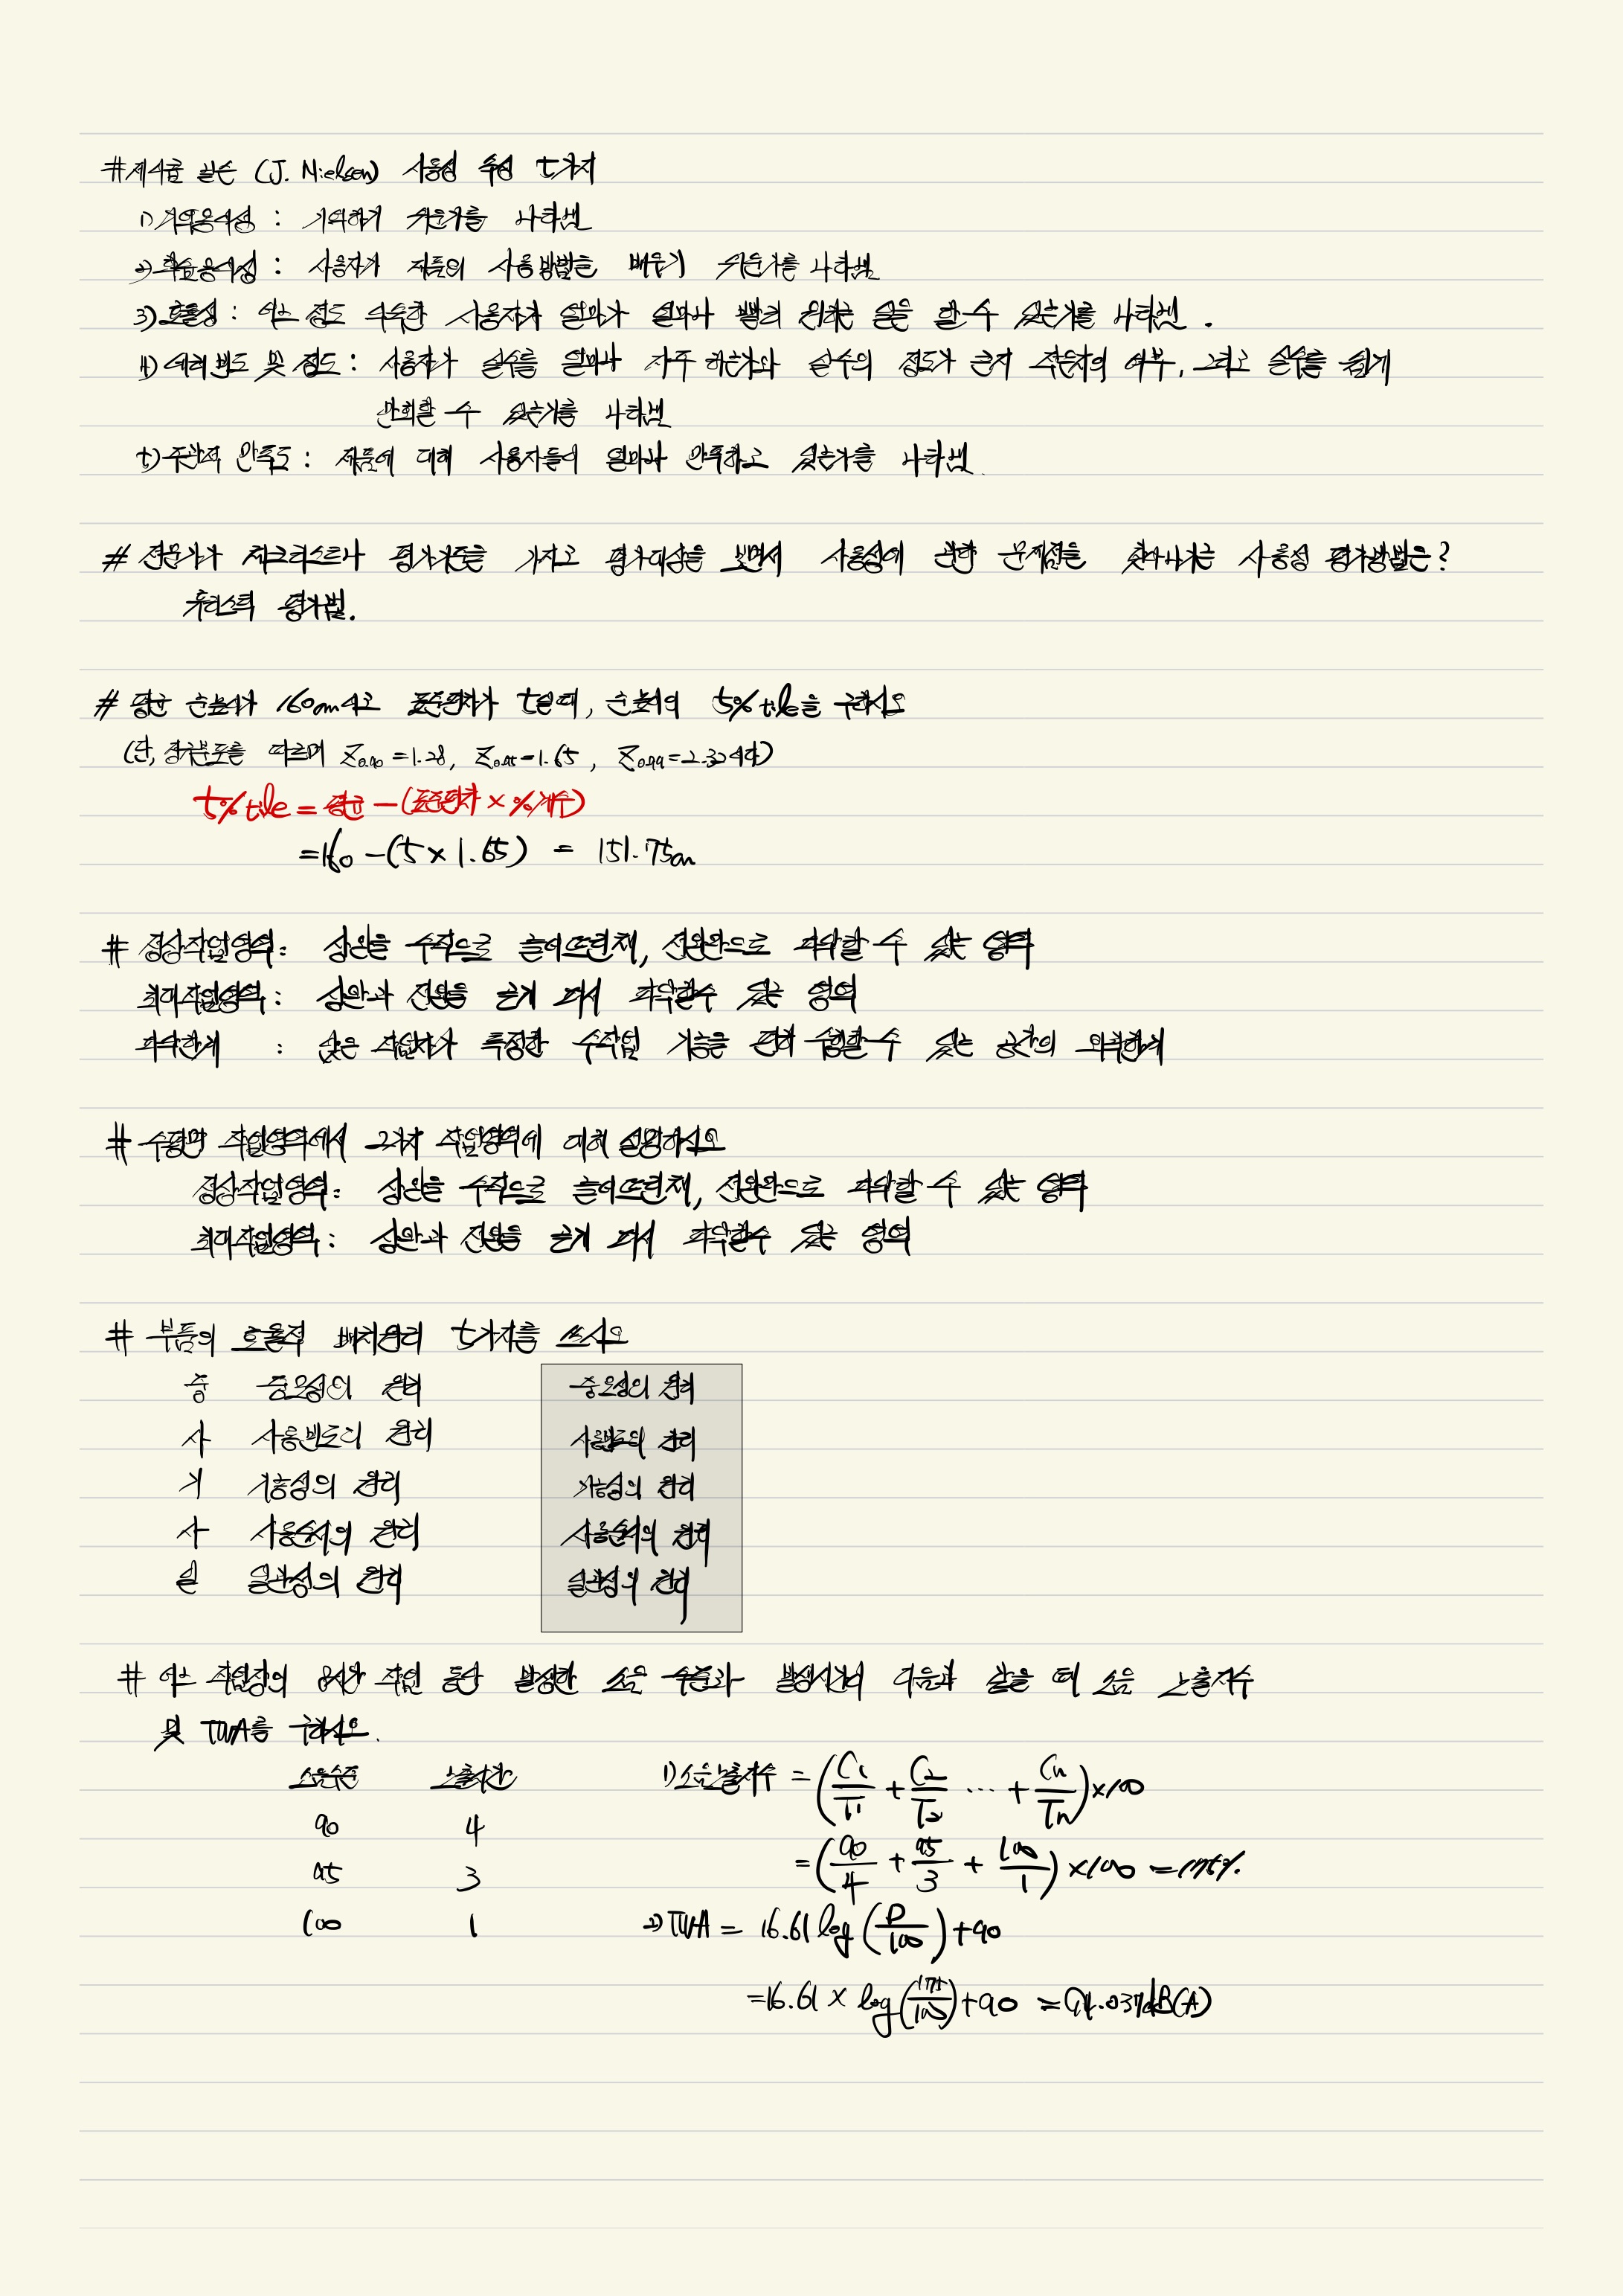 #제이콥 닐슨 (J. Nielsen) 사용성 속성 5가지
1) 기억용이성 : 기억하기 쉬운가를 나타냄
2) 학습용이성 : 사용자가 제품의 사용방법을 배우기 쉬운가를 나타냄
3) 효율성 : 어느 정도 익숙한 사용자가 얼마나 빨리 원하는 일을 할 수 있는가를 나타냄.
4) 에러 빈도 및 정도 : 사용자가 실수를 얼마나 자주 하는가와 실수의 정도가 큰지 작은지의 여부, 그리고 실수를 쉽게
만회할 수 있는가를 나타냄
5) 주관적 만족도 : 제품에 대해 사용자들이 얼마나 만족하고 있는가를 나타냄.
# 전문가가 체크리스트나 평가기준을 가지고 평가대상을 보면서 사용성에 관한 문제점을 찾아나가는 사용성 평가방법은?
휴리스틱 평가법.
# 평균 눈높이가 160cm이고 표준편차가 5일때, 눈높이의 5%tile을 구하시오
(단, 정규분포를 따르며 Z0.90 = 1.28, Z0.95 = 1.65, Z0.99 = 2.32이다)
5%tile = 평균 - (표준편차 × %계수)
=160 - (5 × 1.65) = 151.75cm
# 정상작업영역 : 상완을 수직으로 늘어뜨린채, 전완만으로 파악할 수 있는 영역
최대작업영역 : 상완과 전완을 곧게 펴서 파악할수 있는 영역
파악한계 : 앉은 작업자가 특정한 수작업 기능을 편히 수행할 수 있는 공간의 외곽한계
# 수평면 작업영역에서 2가지 작업영역에 대해 설명하시오
정상작업영역 : 상완을 수직으로 늘어뜨린채, 전완만으로 파악할 수 있는 영역
최대작업영역 : 상완과 전완을 곧게 펴서 파악할수 있는 영역
# 부품의 효율적 배치원리 5가지를 쓰시오
중 중요성의 원리 중요성의 원리
사 사용빈도의 원리 사용빈도의 원리
기 기능성의 원리 기능성의 원리
사 사용순서의 원리 사용순서의 원리
일 일관성의 원리 일관성의 원리
# 어느 작업장의 8시간 작업 동안 발생한 소음 수준과 발생시간이 다음과 같을 때 소음 노출지수
및 TWA를 구하시오.
소음수준 노출시간 1) 소음노출지수 = (C1/T1 + C2/T2 ... + Cn/Tn) × 100
90 4
= (90/4 + 95/3 + 100/1) × 100 = 175%
95 3
100 1 2) TWA = 16.61 log (D/100) + 90
=16.61 × log (175/100) + 90 = 94.037dB(A)